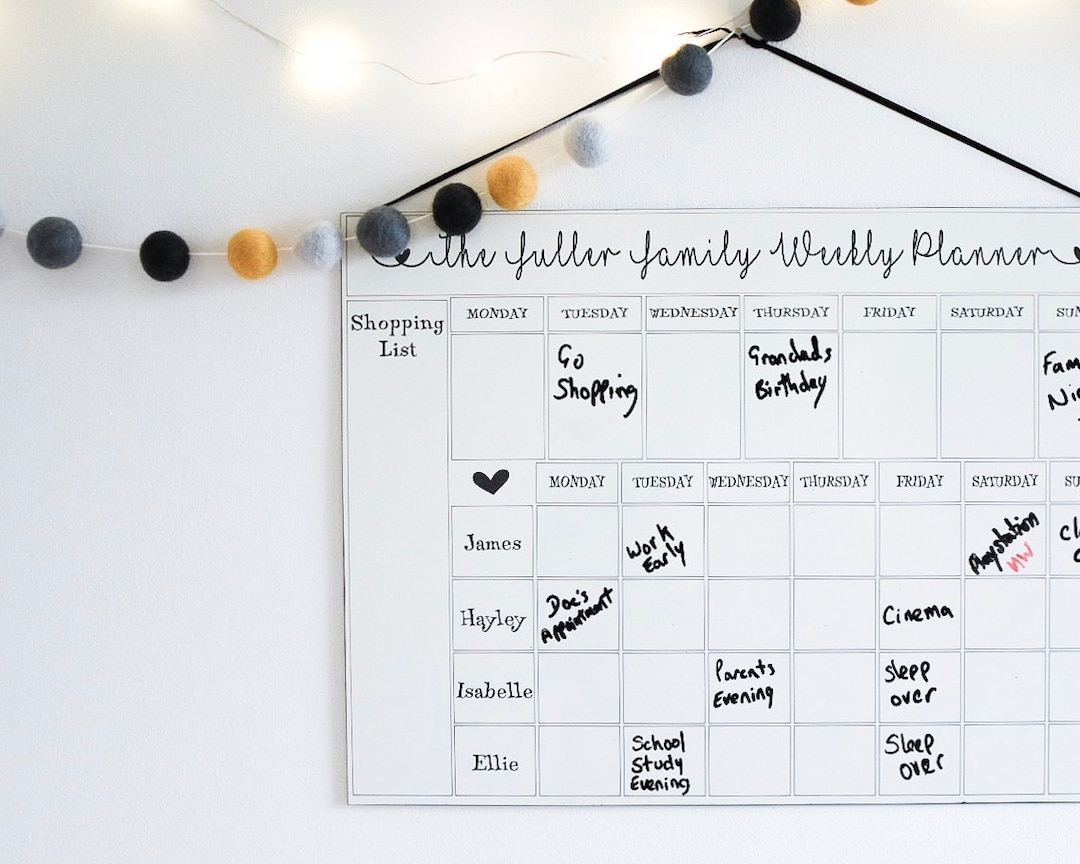 The Fuller Family Weekly Planner
Shopping
List
MONDAY TUESDAY WEDNESDAY THURSDAY FRIDAY SATURDAY SUN
Go
Shopping
Grandads
Birthday
Fam
Ni
MONDAY TUESDAY WEDNESDAY THURSDAY FRIDAY SATURDAY SU
James
Work
Early
Playstation
NW
Cl
Hayley
Doc's
Appointment
Cinema
Isabelle
Parents
Evening
Sleep
over
Ellie
School
Study
Evening
Sleep
over